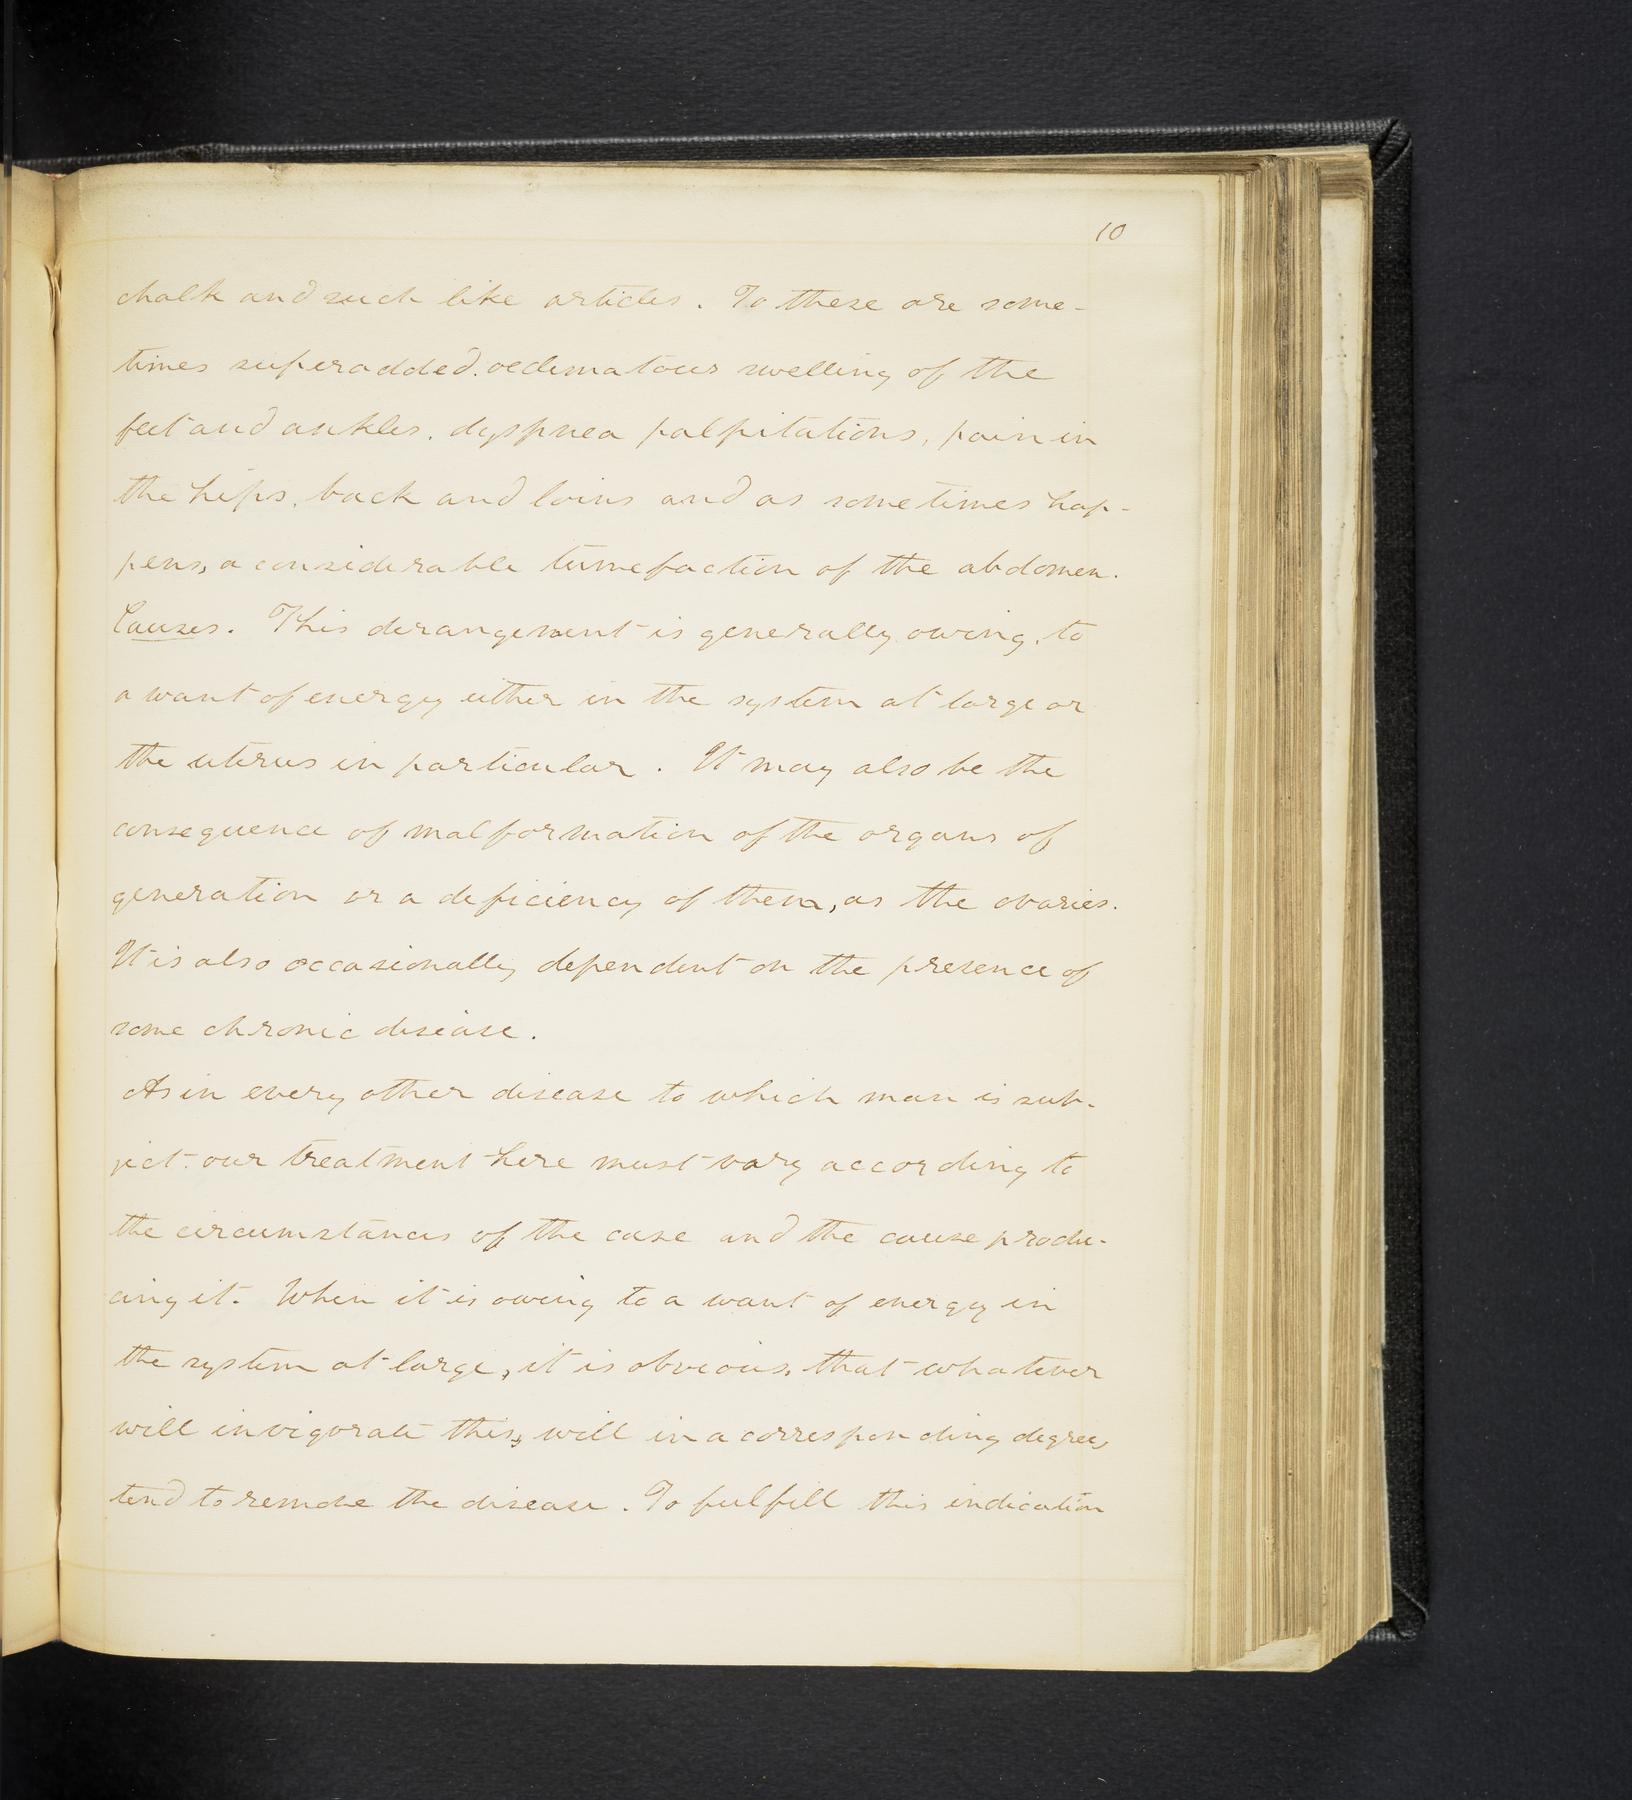 10
chalk and such like articles. To these are some-
times superadded. oedematous swelling of the
feet and ankles. dyspnea palpitations, pain in
the hips, back and loins and as sometimes hap-
pens, a considerable tumefaction of the abdomen.
Causes. This derangement is generally owing, to
a want of energy either in the system at large or
the uterus in particular. It may also be the
consequence of malformation of the organs of
generation or a deficiency of them, as the ovaries.
It is also occasionally dependent on the presence of
some chronic disease.
As in every other disease to which man is sub-
ject. our treatment here must vary according to
the circumstances of the case and the cause produ-
cing it. When it is owing to a want of energy in
the system at large, it is obvious, that whatever
will invigorate this, will in a corresponding degree,
tend to remove the disease. To fulfill this indication